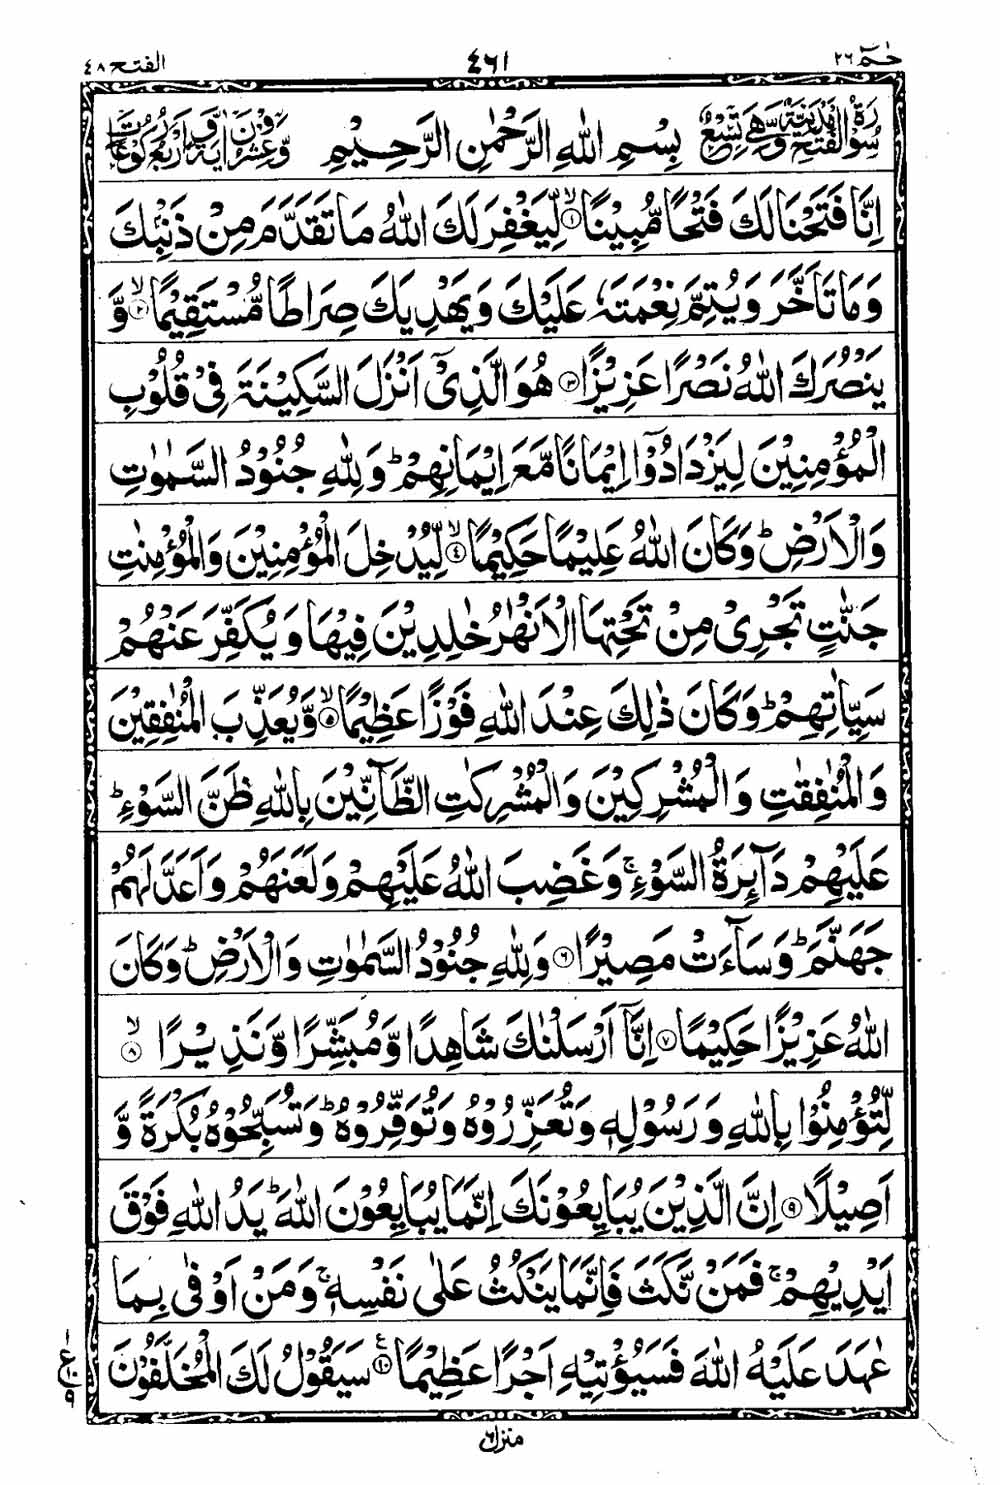 حٰمٓ ٢٦ ٤٦١ الفتح ٤٨
سُوْرَةُ الْفَتْحِ مَدَنِيَّةٌ وَّهِيَ تِسْعٌ بِسْمِ اللّٰهِ الرَّحْمٰنِ الرَّحِيْمِ وَّعِشْرُوْنَ اٰيَةً وَّاَرْبَعُ رُكُوْعَاتٍ
اِنَّا فَتَحْنَا لَكَ فَتْحًا مُّبِيْنًا ۙ﴿١﴾ لِّيَغْفِرَ لَكَ اللّٰهُ مَا تَقَدَّمَ مِنْ ذَنْۢبِكَ
وَمَا تَاَخَّرَ وَيُتِمَّ نِعْمَتَهٗ عَلَيْكَ وَيَهْدِيَكَ صِرَاطًا مُّسْتَقِيْمًا ۙ﴿٢﴾ وَّ
يَنْصُرَكَ اللّٰهُ نَصْرًا عَزِيْزًا ﴿٣﴾ هُوَ الَّذِيْٓ اَنْزَلَ السَّكِيْنَةَ فِيْ قُلُوْبِ
الْمُؤْمِنِيْنَ لِيَزْدَادُوْٓا اِيْمَانًا مَّعَ اِيْمَانِهِمْ ؕ وَلِلّٰهِ جُنُوْدُ السَّمٰوٰتِ
وَالْاَرْضِ ؕ وَكَانَ اللّٰهُ عَلِيْمًا حَكِيْمًا ۙ﴿٤﴾ لِّيُدْخِلَ الْمُؤْمِنِيْنَ وَالْمُؤْمِنٰتِ
جَنّٰتٍ تَجْرِيْ مِنْ تَحْتِهَا الْاَنْهٰرُ خٰلِدِيْنَ فِيْهَا وَيُكَفِّرَ عَنْهُمْ
سَيِّاٰتِهِمْ ؕ وَكَانَ ذٰلِكَ عِنْدَ اللّٰهِ فَوْزًا عَظِيْمًا ۙ﴿٥﴾ وَّيُعَذِّبَ الْمُنٰفِقِيْنَ
وَالْمُنٰفِقٰتِ وَالْمُشْرِكِيْنَ وَالْمُشْرِكٰتِ الظَّآنِّيْنَ بِاللّٰهِ ظَنَّ السَّوْءِ ؕ
عَلَيْهِمْ دَآئِرَةُ السَّوْءِ ۚ وَغَضِبَ اللّٰهُ عَلَيْهِمْ وَلَعَنَهُمْ وَاَعَدَّ لَهُمْ
جَهَنَّمَ ؕ وَسَآءَتْ مَصِيْرًا ﴿٦﴾ وَلِلّٰهِ جُنُوْدُ السَّمٰوٰتِ وَالْاَرْضِ ؕ وَكَانَ
اللّٰهُ عَزِيْزًا حَكِيْمًا ﴿٧﴾ اِنَّآ اَرْسَلْنٰكَ شَاهِدًا وَّمُبَشِّرًا وَّنَذِيْرًا ۙ﴿٨﴾
لِّتُؤْمِنُوْا بِاللّٰهِ وَرَسُوْلِهٖ وَتُعَزِّرُوْهُ وَتُوَقِّرُوْهُ ؕ وَتُسَبِّحُوْهُ بُكْرَةً وَّ
اَصِيْلًا ﴿٩﴾ اِنَّ الَّذِيْنَ يُبَايِعُوْنَكَ اِنَّمَا يُبَايِعُوْنَ اللّٰهَ ؕ يَدُ اللّٰهِ فَوْقَ
اَيْدِيْهِمْ ۚ فَمَنْ نَّكَثَ فَاِنَّمَا يَنْكُثُ عَلٰى نَفْسِهٖ ۚ وَمَنْ اَوْفٰى بِمَا
عٰهَدَ عَلَيْهُ اللّٰهَ فَسَيُؤْتِيْهِ اَجْرًا عَظِيْمًا ﴿١٠﴾ ع سَيَقُوْلُ لَكَ الْمُخَلَّفُوْنَ
١
ع ١٠
٩
منزل ٦